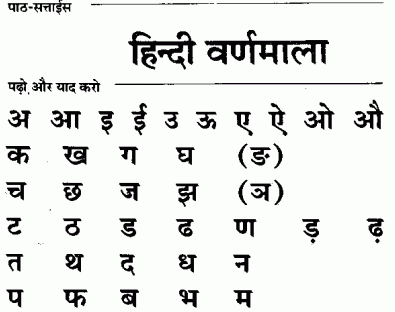 पाठ-सत्ताईस
हिन्दी वर्णमाला
पढ़ो, और याद करो
अ आ इ ई उ ऊ ए ऐ ओ औ
क ख ग घ (ङ)
च छ ज झ (ञ)
ट ठ ड ढ ण ड़ ढ़
त थ द ध न
प फ ब भ म